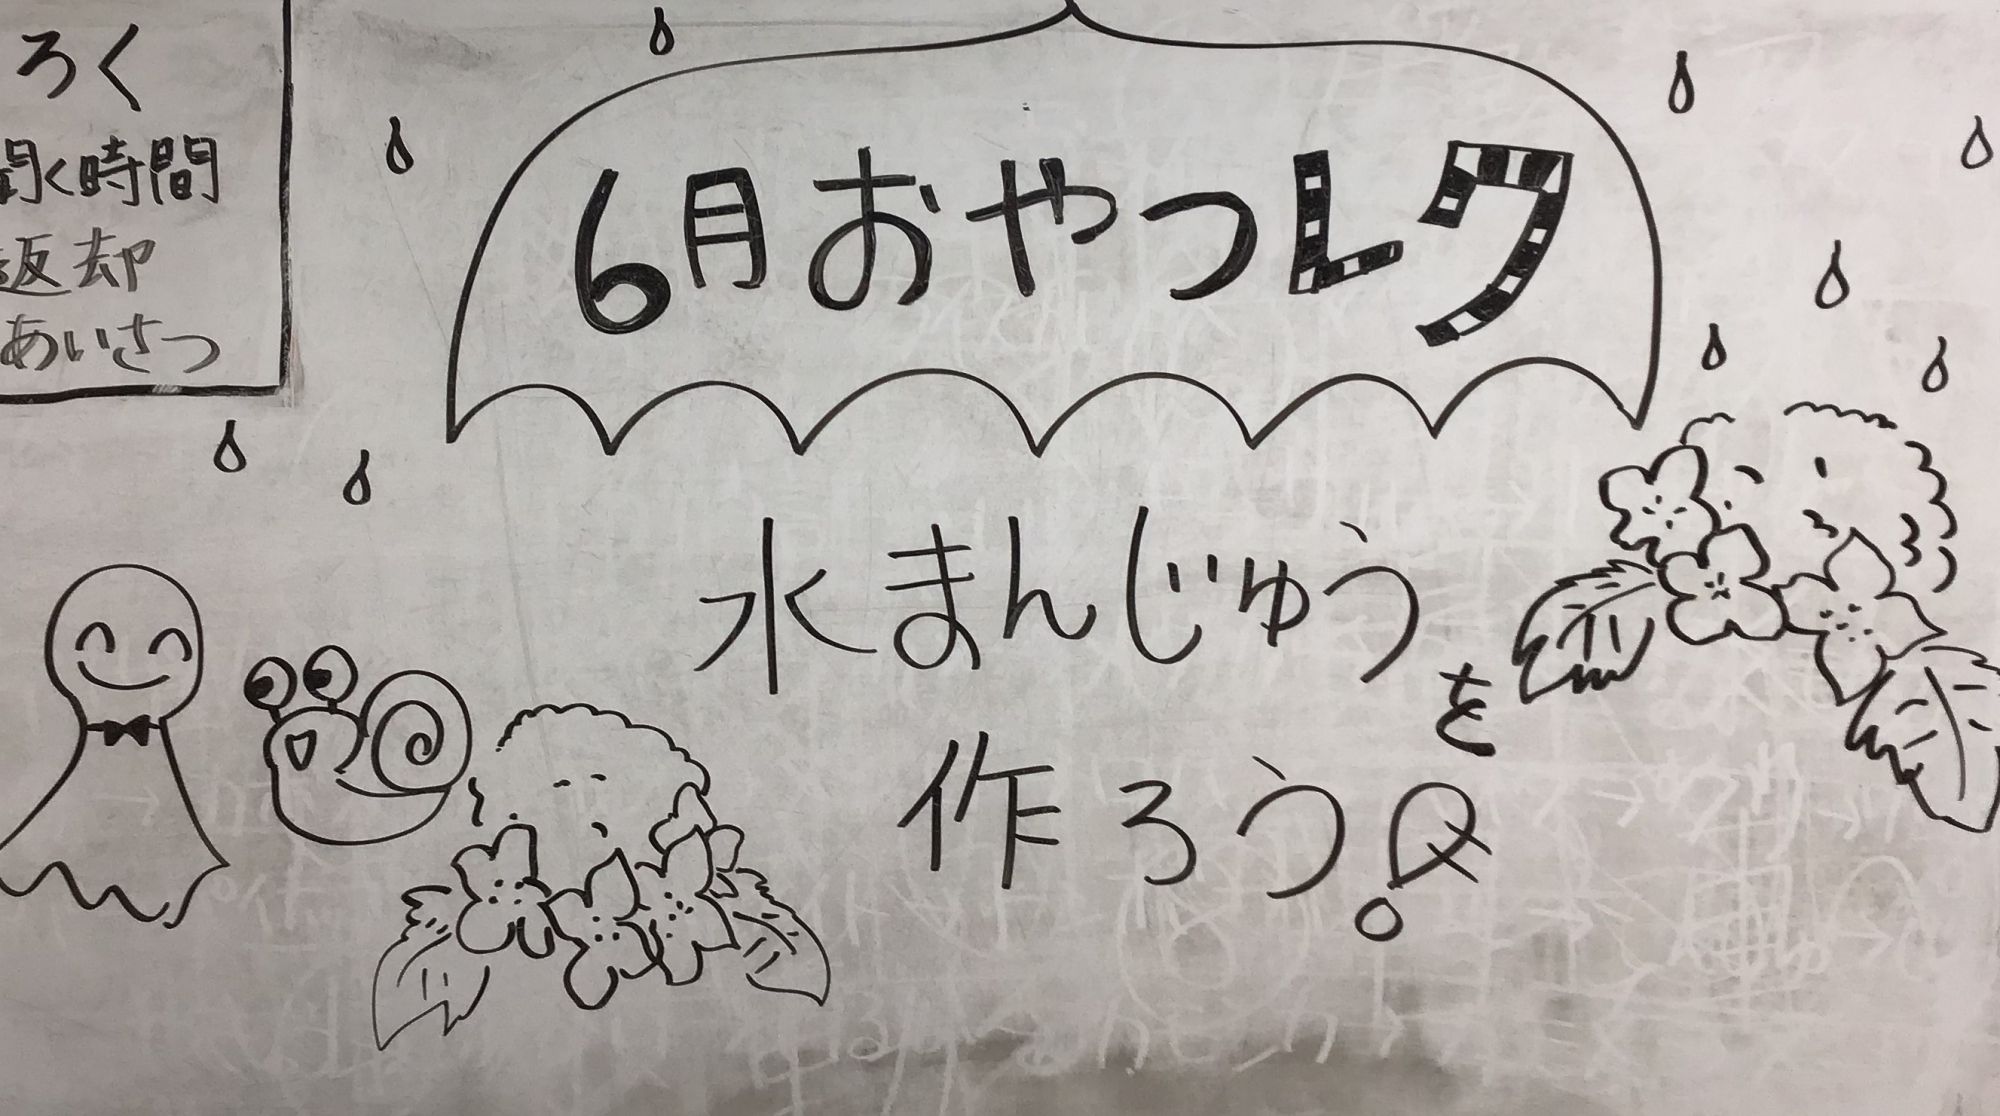 ろく
聞く時間
返却
あいさつ
6月おやつレク
水まんじゅうを
作ろう!